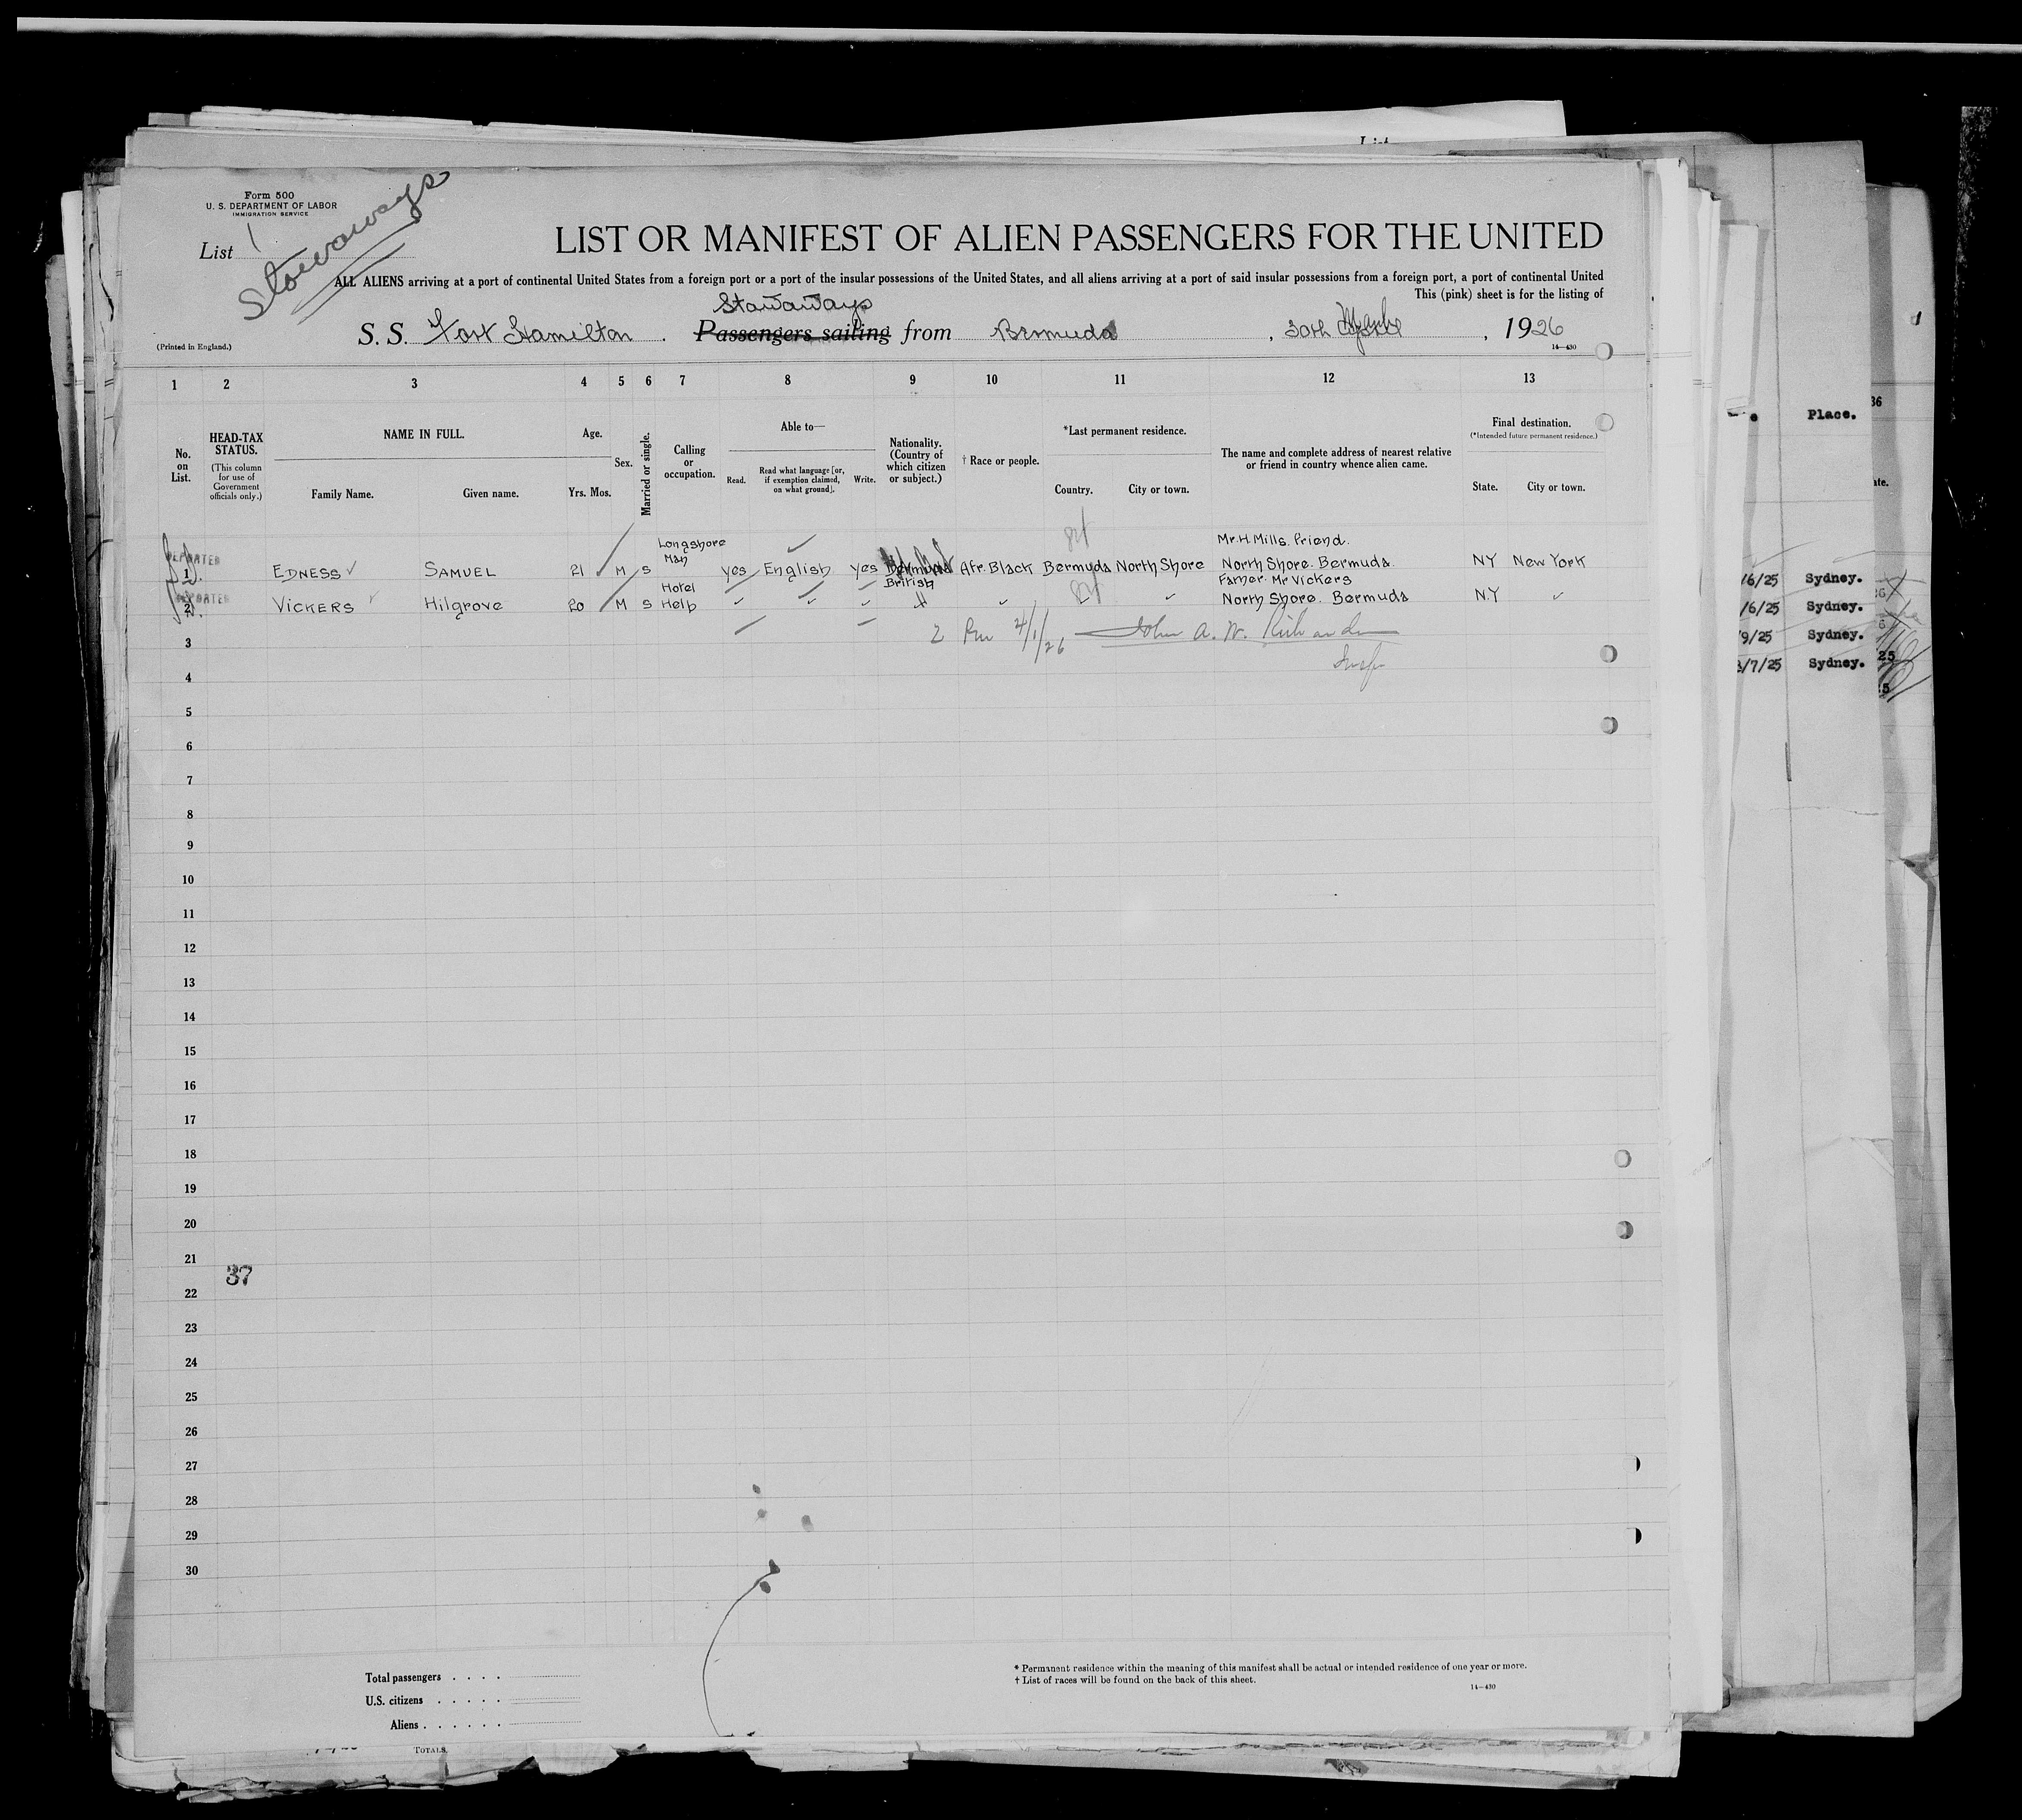 Form 500
U. S. DEPARTMENT OF LABOR
IMMIGRATION SERVICE
List 1
Stowaways
LIST OR MANIFEST OF ALIEN PASSENGERS FOR THE UNITED
ALL ALIENS arriving at a port of continental United States from a foreign port or a port of the insular possessions of the United States, and all aliens arriving at a port of said insular possessions from a foreign port, a port of continental United
This (pink) sheet is for the listing of
Stowaways
S. S. Fort Hamilton . Passengers sailing from Bermuda , 30th March , 1926
(Printed in England.)
14—430
1 2 3 4 5 6 7 8 9 10 11 12 13
No. on List.
HEAD-TAX STATUS.
(This column for use of Government officials only.)
NAME IN FULL.
Family Name. Given name.
Age.
Yrs. Mos.
Sex.
Married or single.
Calling or occupation.
Able to—
Read.
Read what language [or, if exemption claimed, on what ground].
Write.
Nationality. (Country of which citizen or subject.)
† Race or people.
*Last permanent residence.
Country. City or town.
The name and complete address of nearest relative or friend in country whence alien came.
Final destination.
(*Intended future permanent residence.)
State. City or town.
DEPORTED
1 EDNESS SAMUEL 21 M S Longshore Man yes English yes British Afr. Black Bermuda North Shore Mr. H. Mills. Friend. North Shore. Bermuda. NY New York
DEPORTED
2 VICKERS Hilgrove 20 M S Hotel Help Father. Mr Vickers North Shore. Bermuda NY
2 4/1/26 John A. W.
Insp
3
4
5
6
7
8
9
10
11
12
13
14
15
16
17
18
19
20
21
37
22
23
24
25
26
27
28
29
30
Total passengers . . . .
U.S. citizens . . . . .
Aliens . . . . . .
* Permanent residence within the meaning of this manifest shall be actual or intended residence of one year or more.
† List of races will be found on the back of this sheet.
14—430
TOTALS.
Place.
/6/25 Sydney.
/6/25 Sydney.
/9/25 Sydney.
/7/25 Sydney.